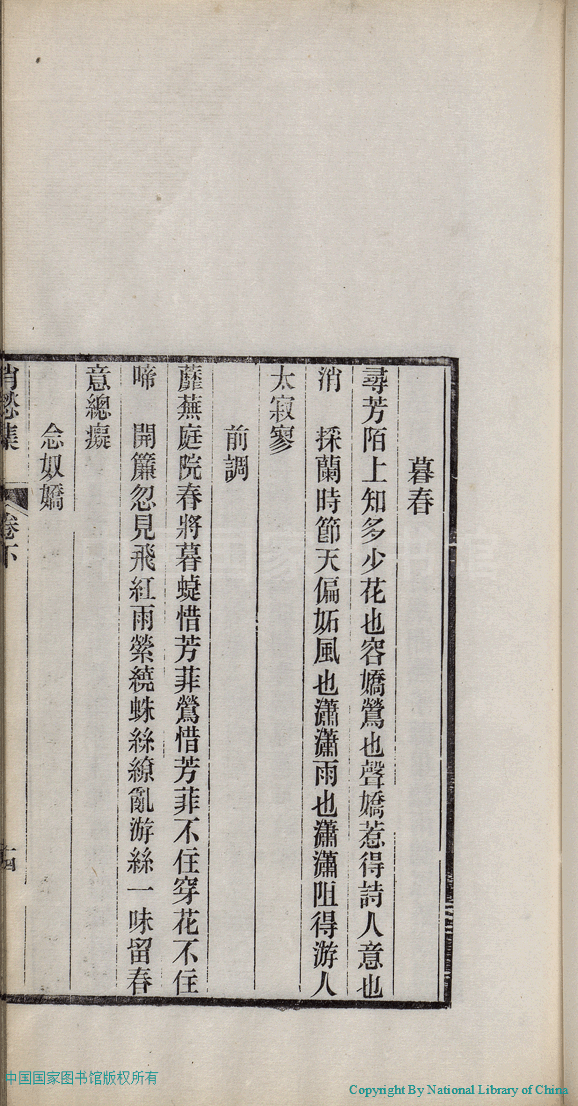 暮春
尋芳陌上知多少花也容嬌鶯也聲嬌惹得詩人意也
消　採蘭時節天偏妬風也瀟瀟雨也瀟瀟阻得游人
太寂寥
前調
蘼蕪庭院春將暮蜨惜芳菲鶯惜芳菲不住穿花不住
啼　開簾忽見飛紅雨縈繞蛛絲繚亂游絲一味留春
意總癡
念奴嬌
消愁集　卷下　十四
中国国家图书馆版权所有
Copyright By National Library of China